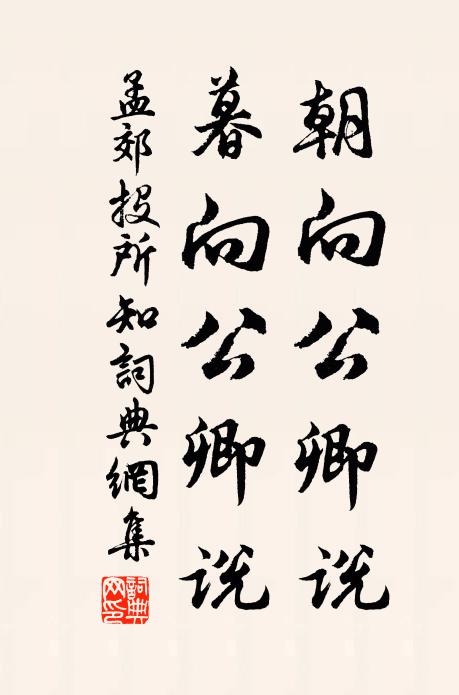 朝向公卿説
暮向公卿説
孟郊投所知詞典網集
詞典網印